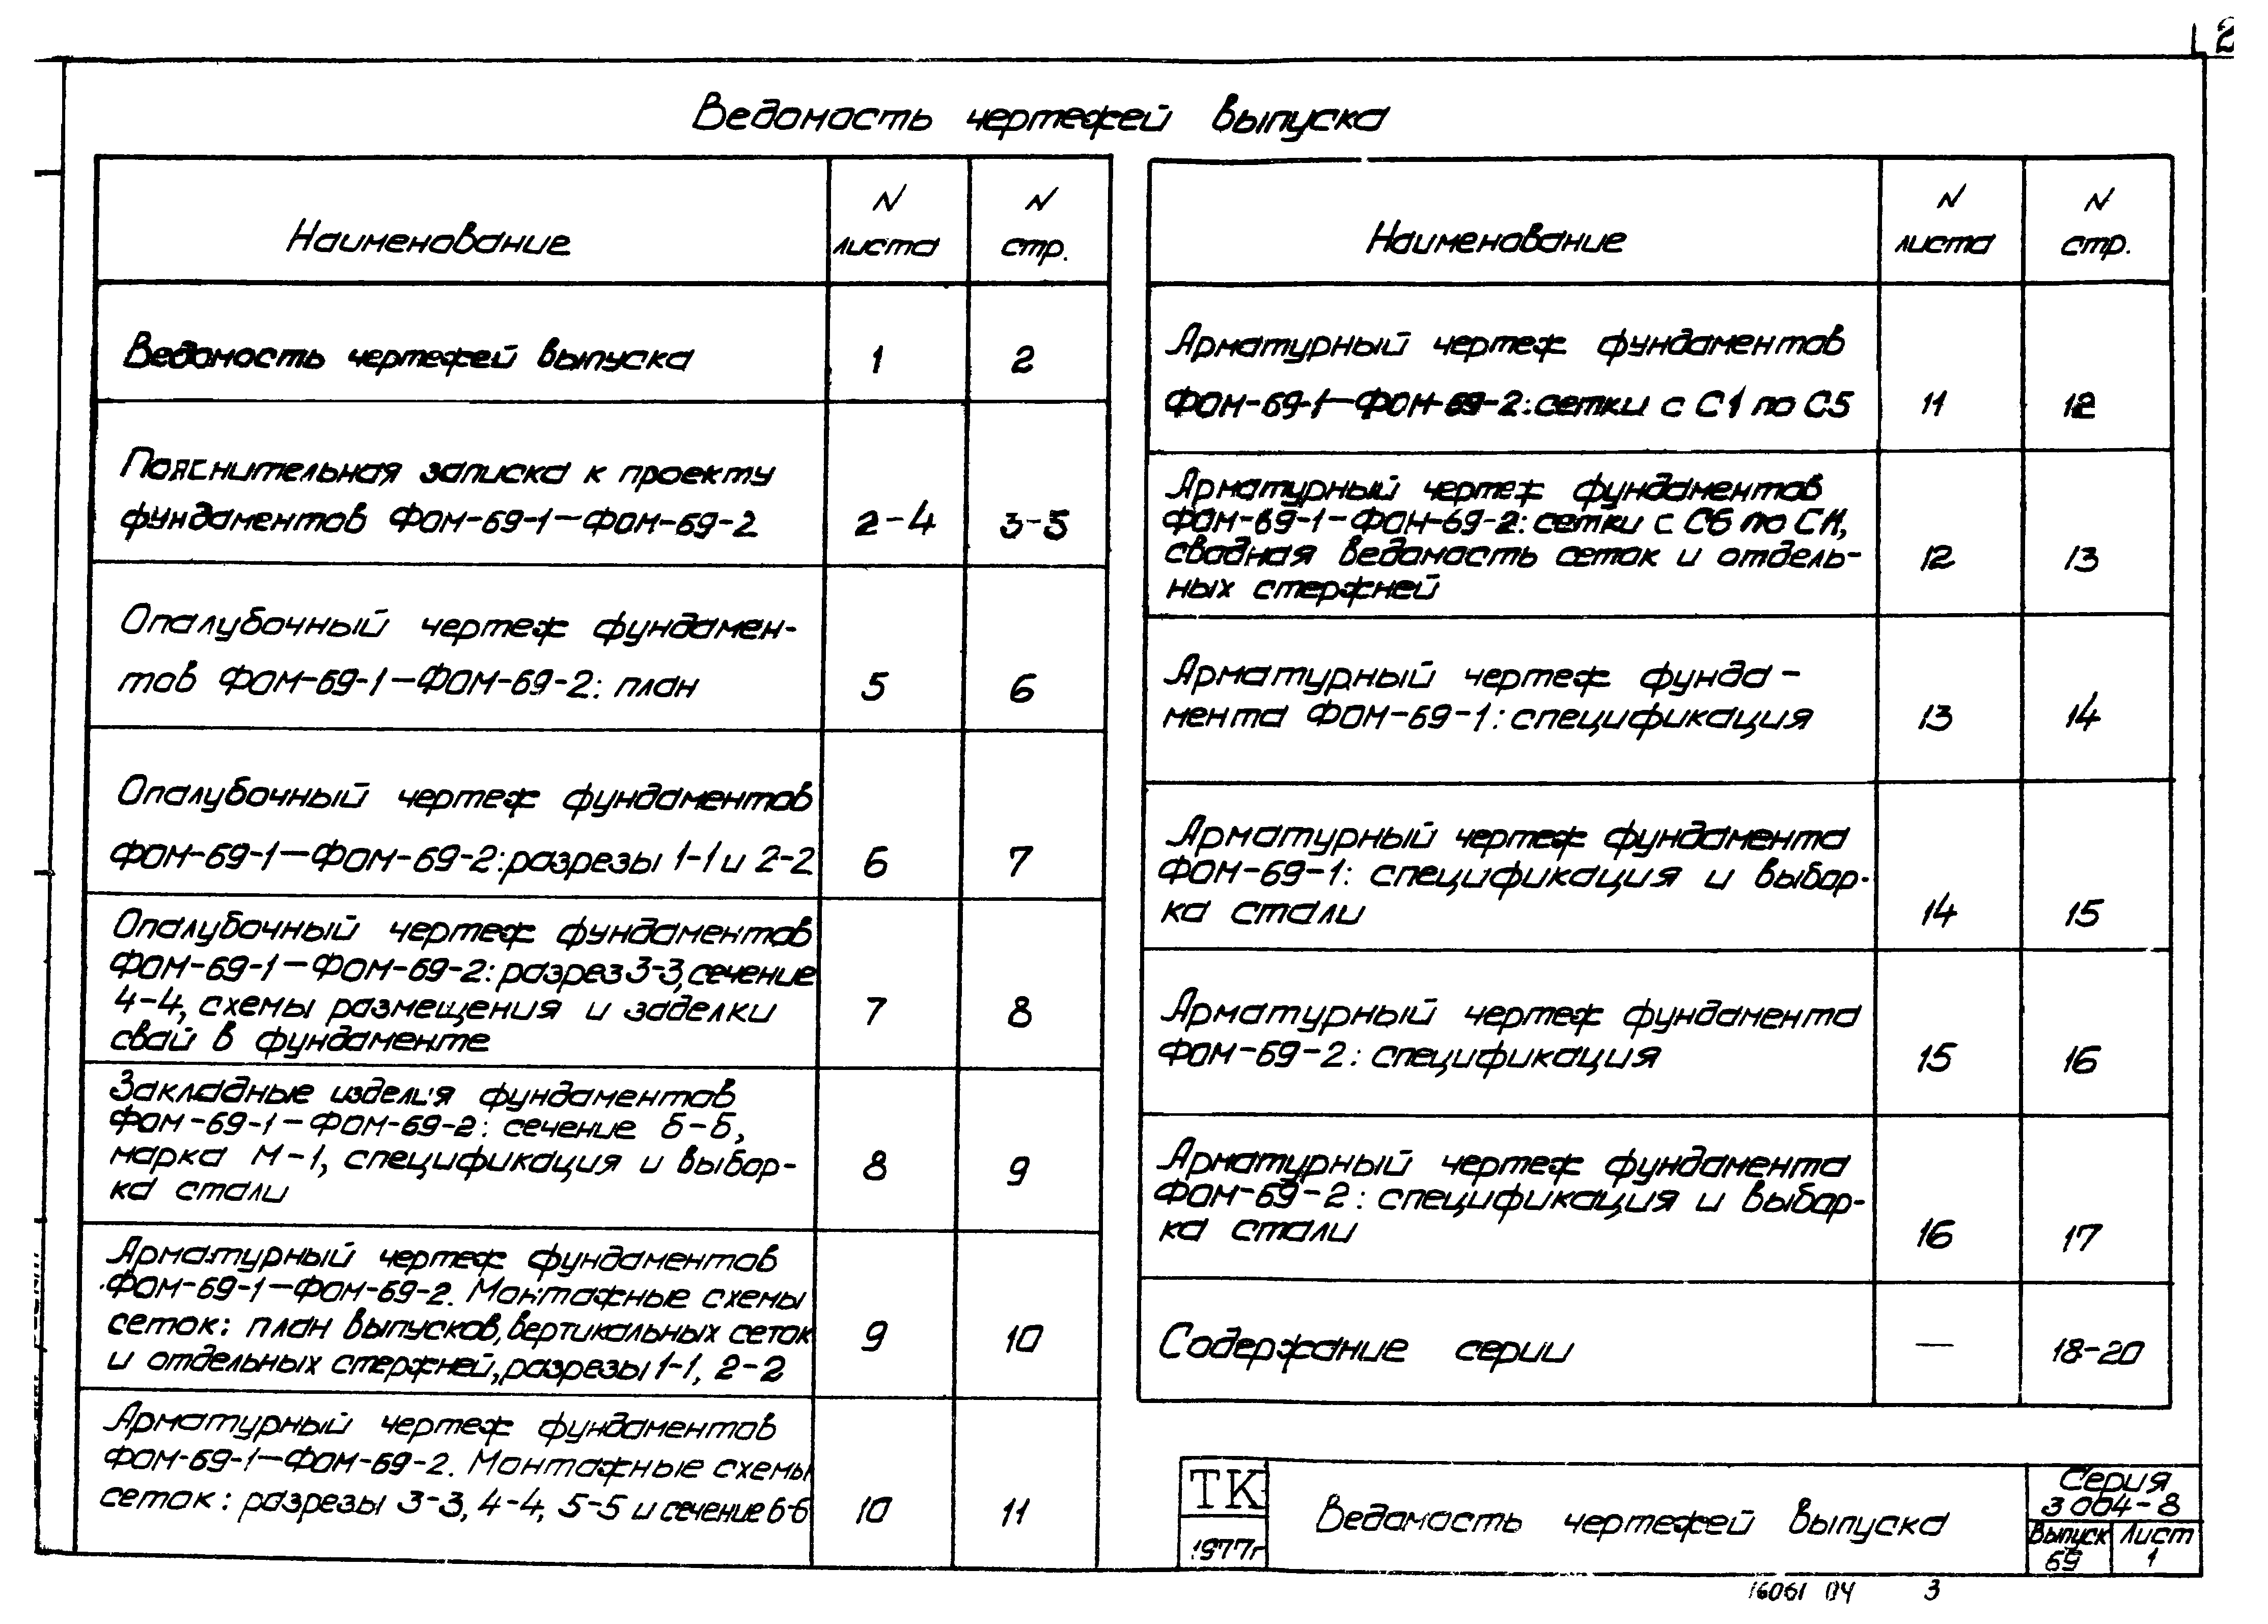 2
Ведомость чертежей выпуска
Наименование
N
листа
N
стр.
Ведомость чертежей выпуска 1 2
Пояснительная записка к проекту
фундаментов ФОМ-69-1—ФОМ-69-2 2-4 3-5
Опалубочный чертеж фундамен-
тов ФОМ-69-1—ФОМ-69-2: план 5 6
Опалубочный чертеж фундаментов
ФОМ-69-1—ФОМ-69-2: разрезы 1-1 и 2-2 6 7
Опалубочный чертеж фундаментов
ФОМ-69-1—ФОМ-69-2: разрез 3-3, сечение
4-4, схемы размещения и заделки
свай в фундаменте
7 8
Закладные изделия фундаментов
ФОМ-69-1—ФОМ-69-2: сечение Б-Б,
марка М-1, спецификация и выбор-
ка стали
8 9
Арматурный чертеж фундаментов
ФОМ-69-1—ФОМ-69-2. Монтажные схемы
сеток: план выпусков, вертикальных сеток
и отдельных стержней, разрезы 1-1, 2-2
9 10
Арматурный чертеж фундаментов
ФОМ-69-1—ФОМ-69-2. Монтажные схемы
сеток: разрезы 3-3, 4-4, 5-5 и сечение 6-6 10 11
Наименование
N
листа
N
стр.
Арматурный чертеж фундаментов
ФОМ-69-1—ФОМ-69-2: сетки с С1 по С5 11 12
Арматурный чертеж фундаментов
ФОМ-69-1—ФОМ-69-2: сетки с С6 по С11,
сводная ведомость сеток и отдель-
ных стержней
12 13
Арматурный чертеж фунда-
мента ФОМ-69-1: спецификация 13 14
Арматурный чертеж фундамента
ФОМ-69-1: спецификация и выбор-
ка стали 14 15
Арматурный чертеж фундамента
ФОМ-69-2: спецификация 15 16
Арматурный чертеж фундамента
ФОМ-69-2: спецификация и выбор-
ка стали 16 17
Содержание серии — 18-20
ТК
1977г
Ведомость чертежей выпуска
Серия
3 004-8
Выпуск
69
Лист
1
16061 04 3